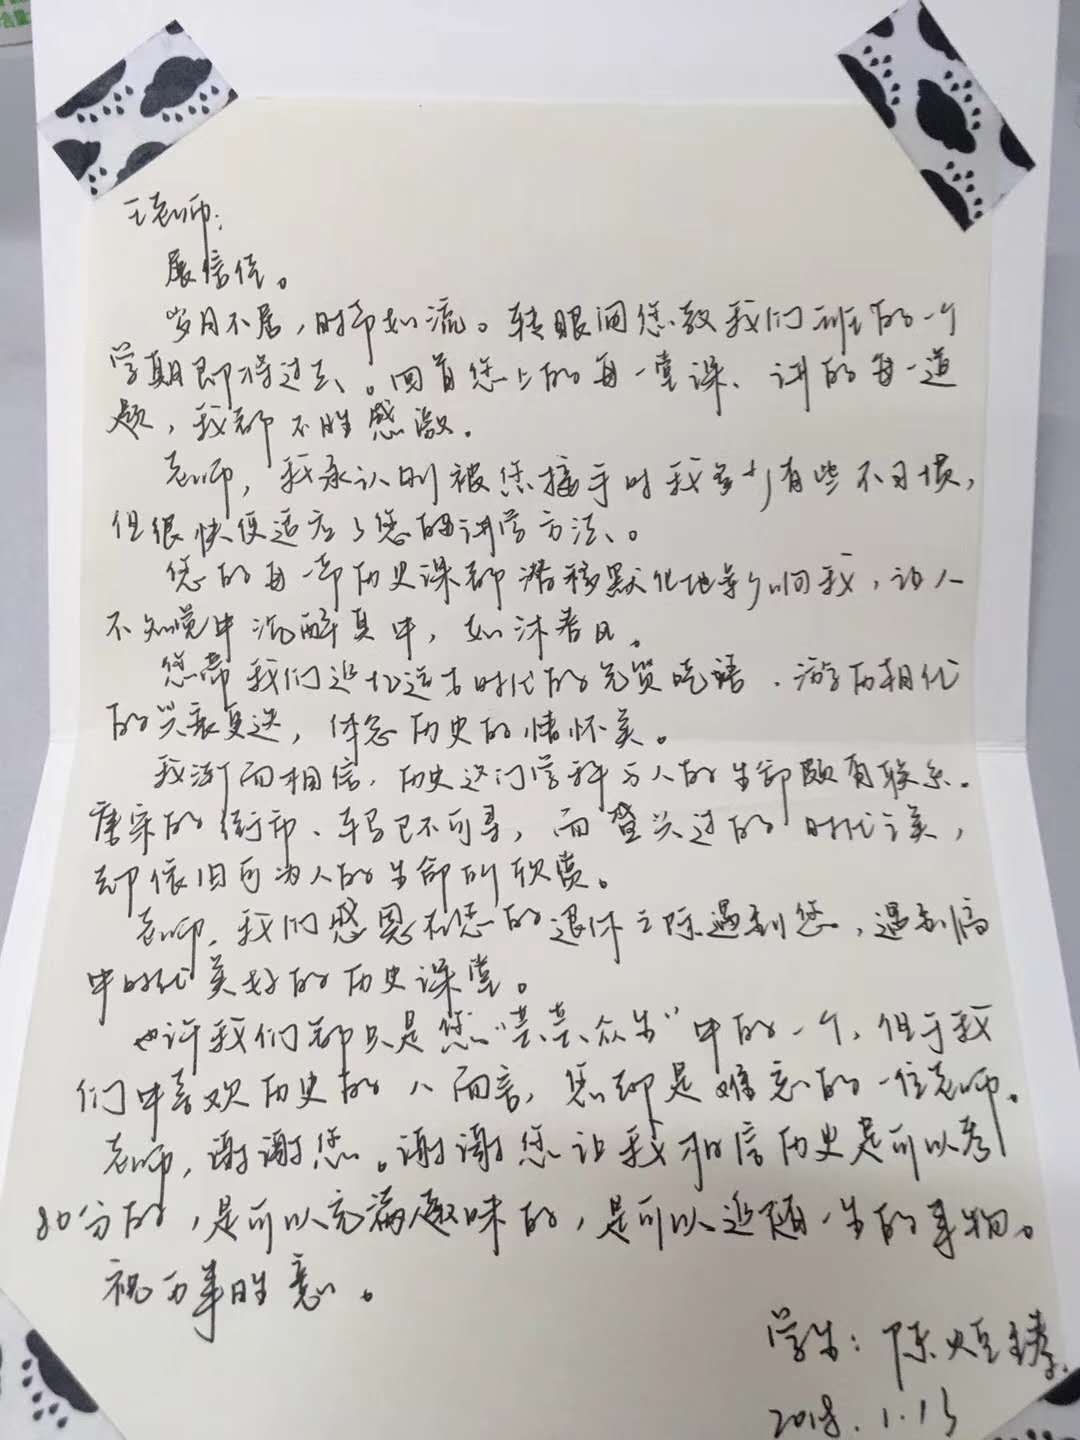 王老师：
展信佳。
岁月不居，时节如流。转眼间您教我们班的一个
学期即将过去。回首您上的每一堂课、讲的每一道
题，我都不胜感激。
老师，我承认刚被您接手时我多少有些不习惯，
但很快便适应了您的讲学方法。
您的每一节历史课都潜移默化地影响我，让人
不知觉中沉醉其中，如沐春风。
您带我们追忆远古时代的先贤晓语、游历朝代
的兴衰更迭，体念历史的情怀美。
我渐而相信，历史这门学科与人的生命颇有联系。
唐宋的街市、车马已不可寻，而曾兴过的时代之美，
却依旧可为人的生命所欣赏。
老师，我们感恩在您的退休之际遇到您，遇到高
中时代美好的历史课堂。
也许我们都只是您“芸芸众生”中的一个，但于我
们中喜欢历史的人而言，您却是难忘的一位老师。
老师，谢谢您。谢谢您让我相信历史是可以考
80分的，是可以充满趣味的，是可以追随一生的事物。
祝万事胜意。
学生：陈
2018.1.13